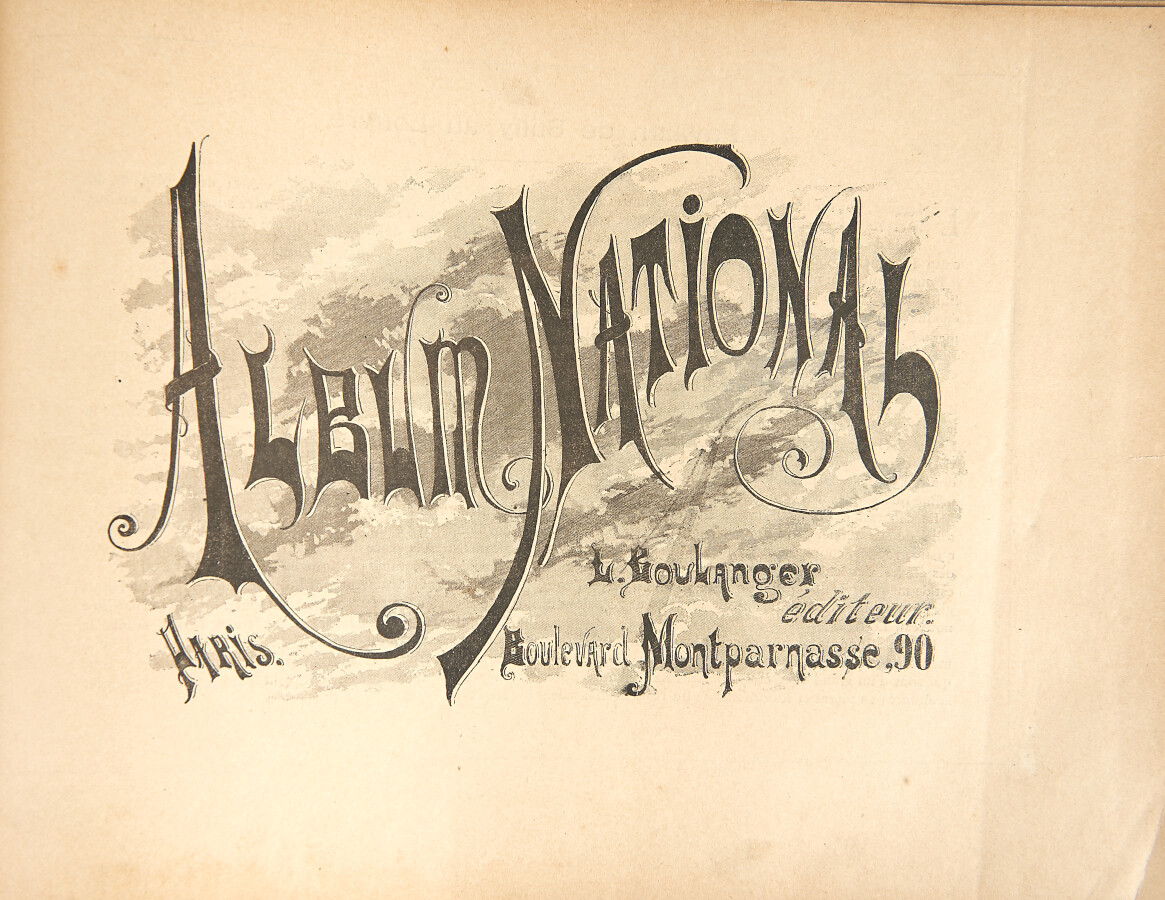 ALBUM NATIONAL
L. Boulanger
éditeur.
PARIS. Boulevard Montparnasse, 90